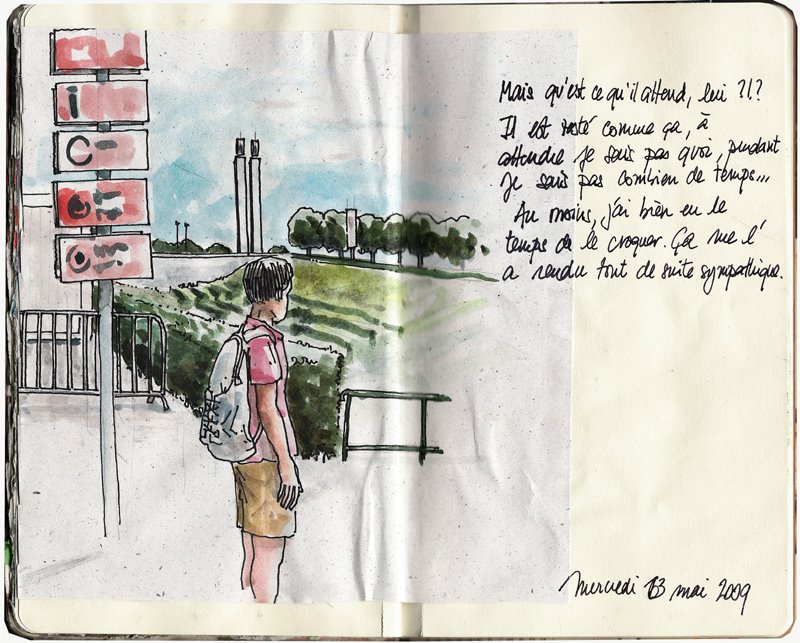 Mais qu'est ce qu'il attend, lui ?!?
Il est resté comme ça, à
attendre je sais pas quoi, pendant
je sais pas combien de temps...
Au moins, j'ai bien eu le
temps de le croquer. Ça me l'
a rendu tout de suite sympathique.
Mercredi 13 mai 2009